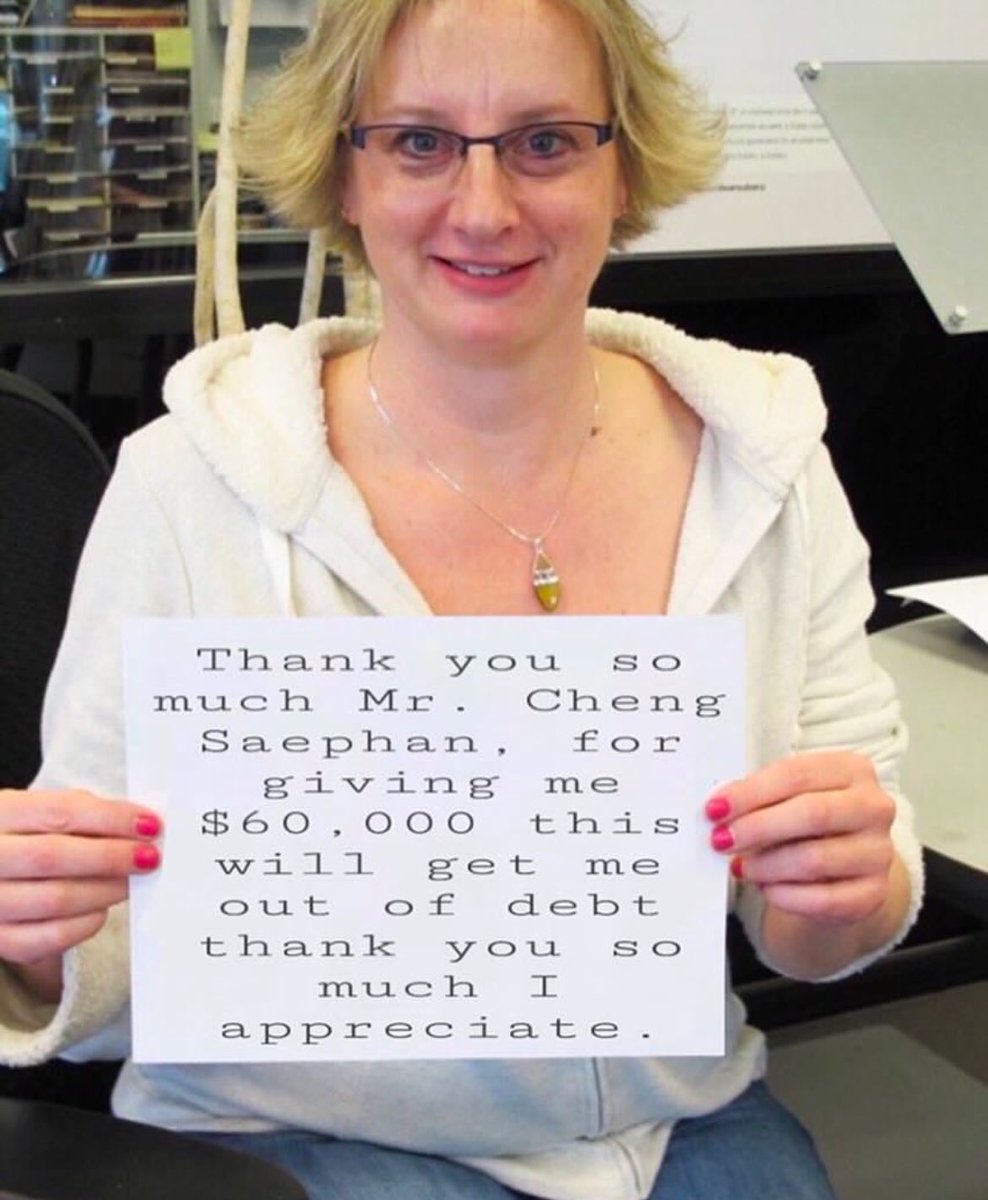 Thank you so
much Mr. Cheng
Saephan, for
giving me
$60,000 this
will get me
out of debt
thank you so
much I
appreciate.